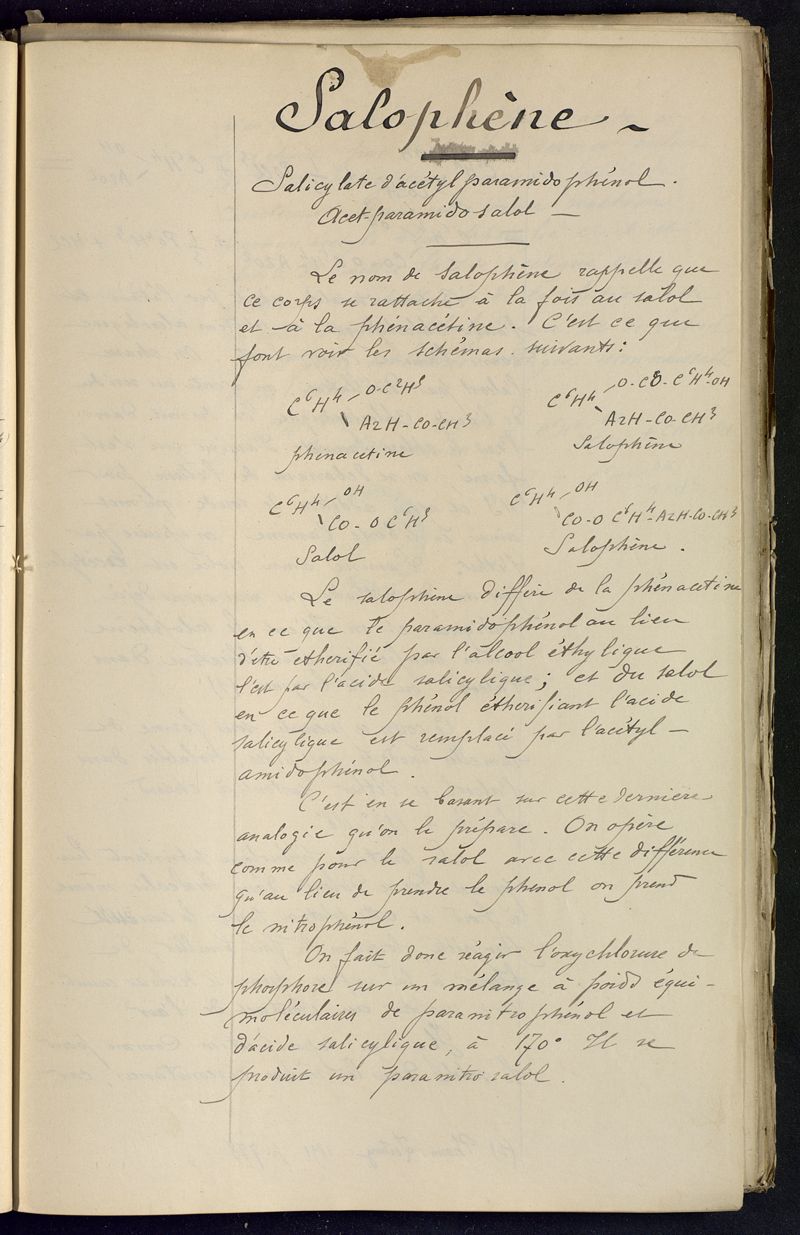 Salophène –
Salicylate d'acétylparamidophénol.
Acet-paramidosalol –
Le nom de Salophène rappelle que
ce corps se rattache à la fois au salol
et à la phénacétine. C'est ce que
font voir les schémas suivants:
C⁶H⁴ / O-C²H⁵
\ AzH-CO-CH³
phenacetine
C⁶H⁴ / O-CO-C⁶H⁴-OH
\ AzH-CO-CH³
Salophène
C⁶H⁴ / OH
\ CO-OC⁶H⁵
Salol
C⁶H⁴ / OH
\ CO-O C⁶H⁴-AzH-CO-CH³
Salophène.
Le salophène diffère de la phénacetine
en ce que le paramidophénol au lieu
d'etre etherifié par l'alcool éthylique
l'est par l'acide salicylique; et du salol
en ce que le phénol éthérifiant l'acide
salicylique est remplacé par l'acétyl-
amidophénol.
C'est en se basant sur cette derniere
analogie qu'on le prépare. On opère
comme pour le salol avec cette différence
qu'au lieu de prendre le phenol on prend
le nitrophénol.
On fait donc réagir l'oxychlorure de
phosphore sur un mélange à poids équi-
moléculaires de paranitrophénol et
d'acide salicylique, à 170° Il se
produit un paranitrosalol.